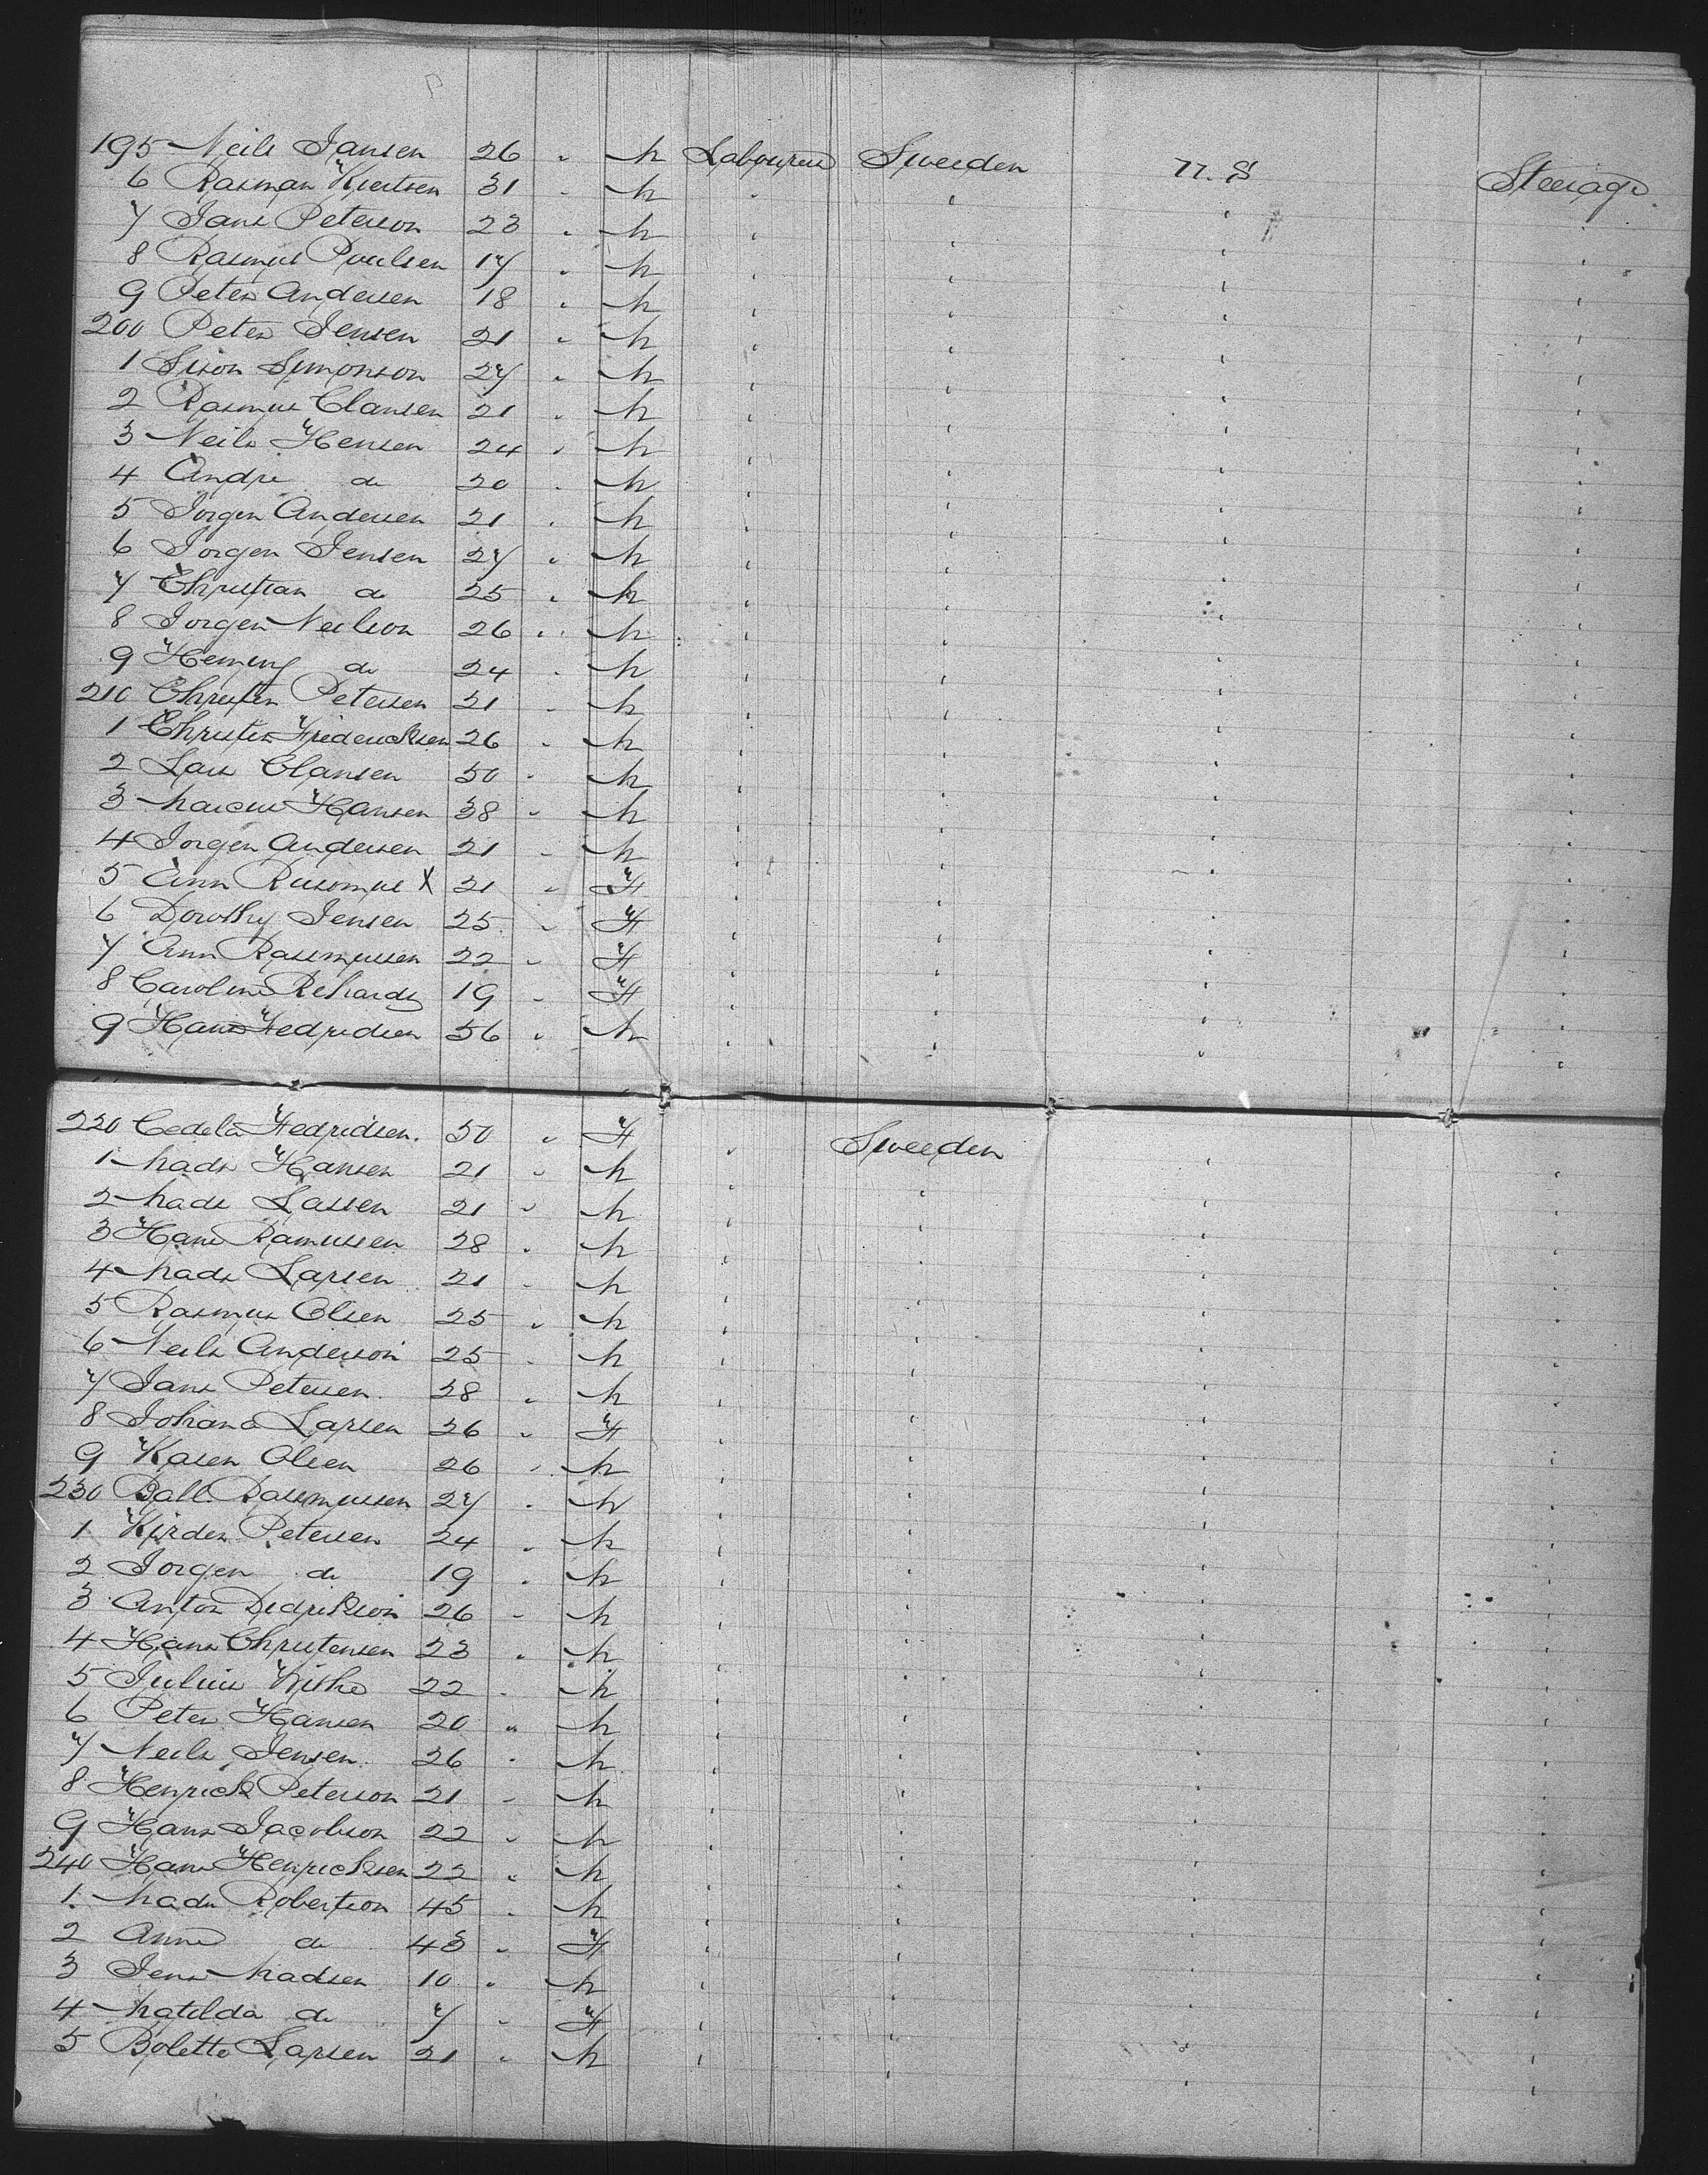 195 Neils Jansen 26 " M Labourers Sweeden U. S Steerage
6 Rasman Kiertsen 31 " M
7 Jans Peterson 23 " M
8 Rasmus Poulsen 17 " M
9 Peter Andersen 18 " M
200 Peter Jensen 21 " M
1 Sison Simonson 27 " M
2 Rasmus Clansen 21 " M
3 Neils Hensen 24 " M
4 Andre do 20 " M
5 Jorgen Andersen 21 " M
6 Jorgen Jensen 27 " M
7 Christian do 25 " M
8 Jorgen Neilson 26 " M
9 Heming do 24 " M
210 Christen Petersen 21 " M
1 Christen Fredericksen 26 " M
2 Lars Clansen 50 " M
3 Marcus Hansen 38 " M
4 Jorgen Andersen 21 " M
5 Ann Rusomus X 21 " F
6 Dorothy Jensen 25 " F
7 Ann Rassmussen 22 " F
8 Caroline Richards 19 " F
9 Hans Fedridsen 56 " M
220 Cedela Fedridsen 50 " F Sweeden
1 Mads Hansen 21 " M
2 Mads Lassen 21 " M
3 Hans Ramussen 28 " M
4 Mads Larsen 21 " M
5 Rasmus Olsen 25 " M
6 Neils Anderson 25 " M
7 Jans Petersen 28 " M
8 Johana Larsen 26 " F
9 Karen Olsen 26 " M
230 Ball Rassmussen 27 " M
1 Kirden Petersen 24 " M
2 Jorgen do 19 " M
3 Anton Dedrickson 26 " M
4 Hans Christensen 23 " M
5 Julius 22 " M
6 Peter Hansen 20 " M
7 Neils Jensen 26 " M
8 Henrick Peterson 21 " M
9 Hans Jacobson 22 " M
240 Hans Henricksen 22 " M
1 Mads Robertson 45 " M
2 Anne do 43 " F
3 Jens Madsen 10 " M
4 Matilda do 7 " F
5 Bolette Larsen 21 " M